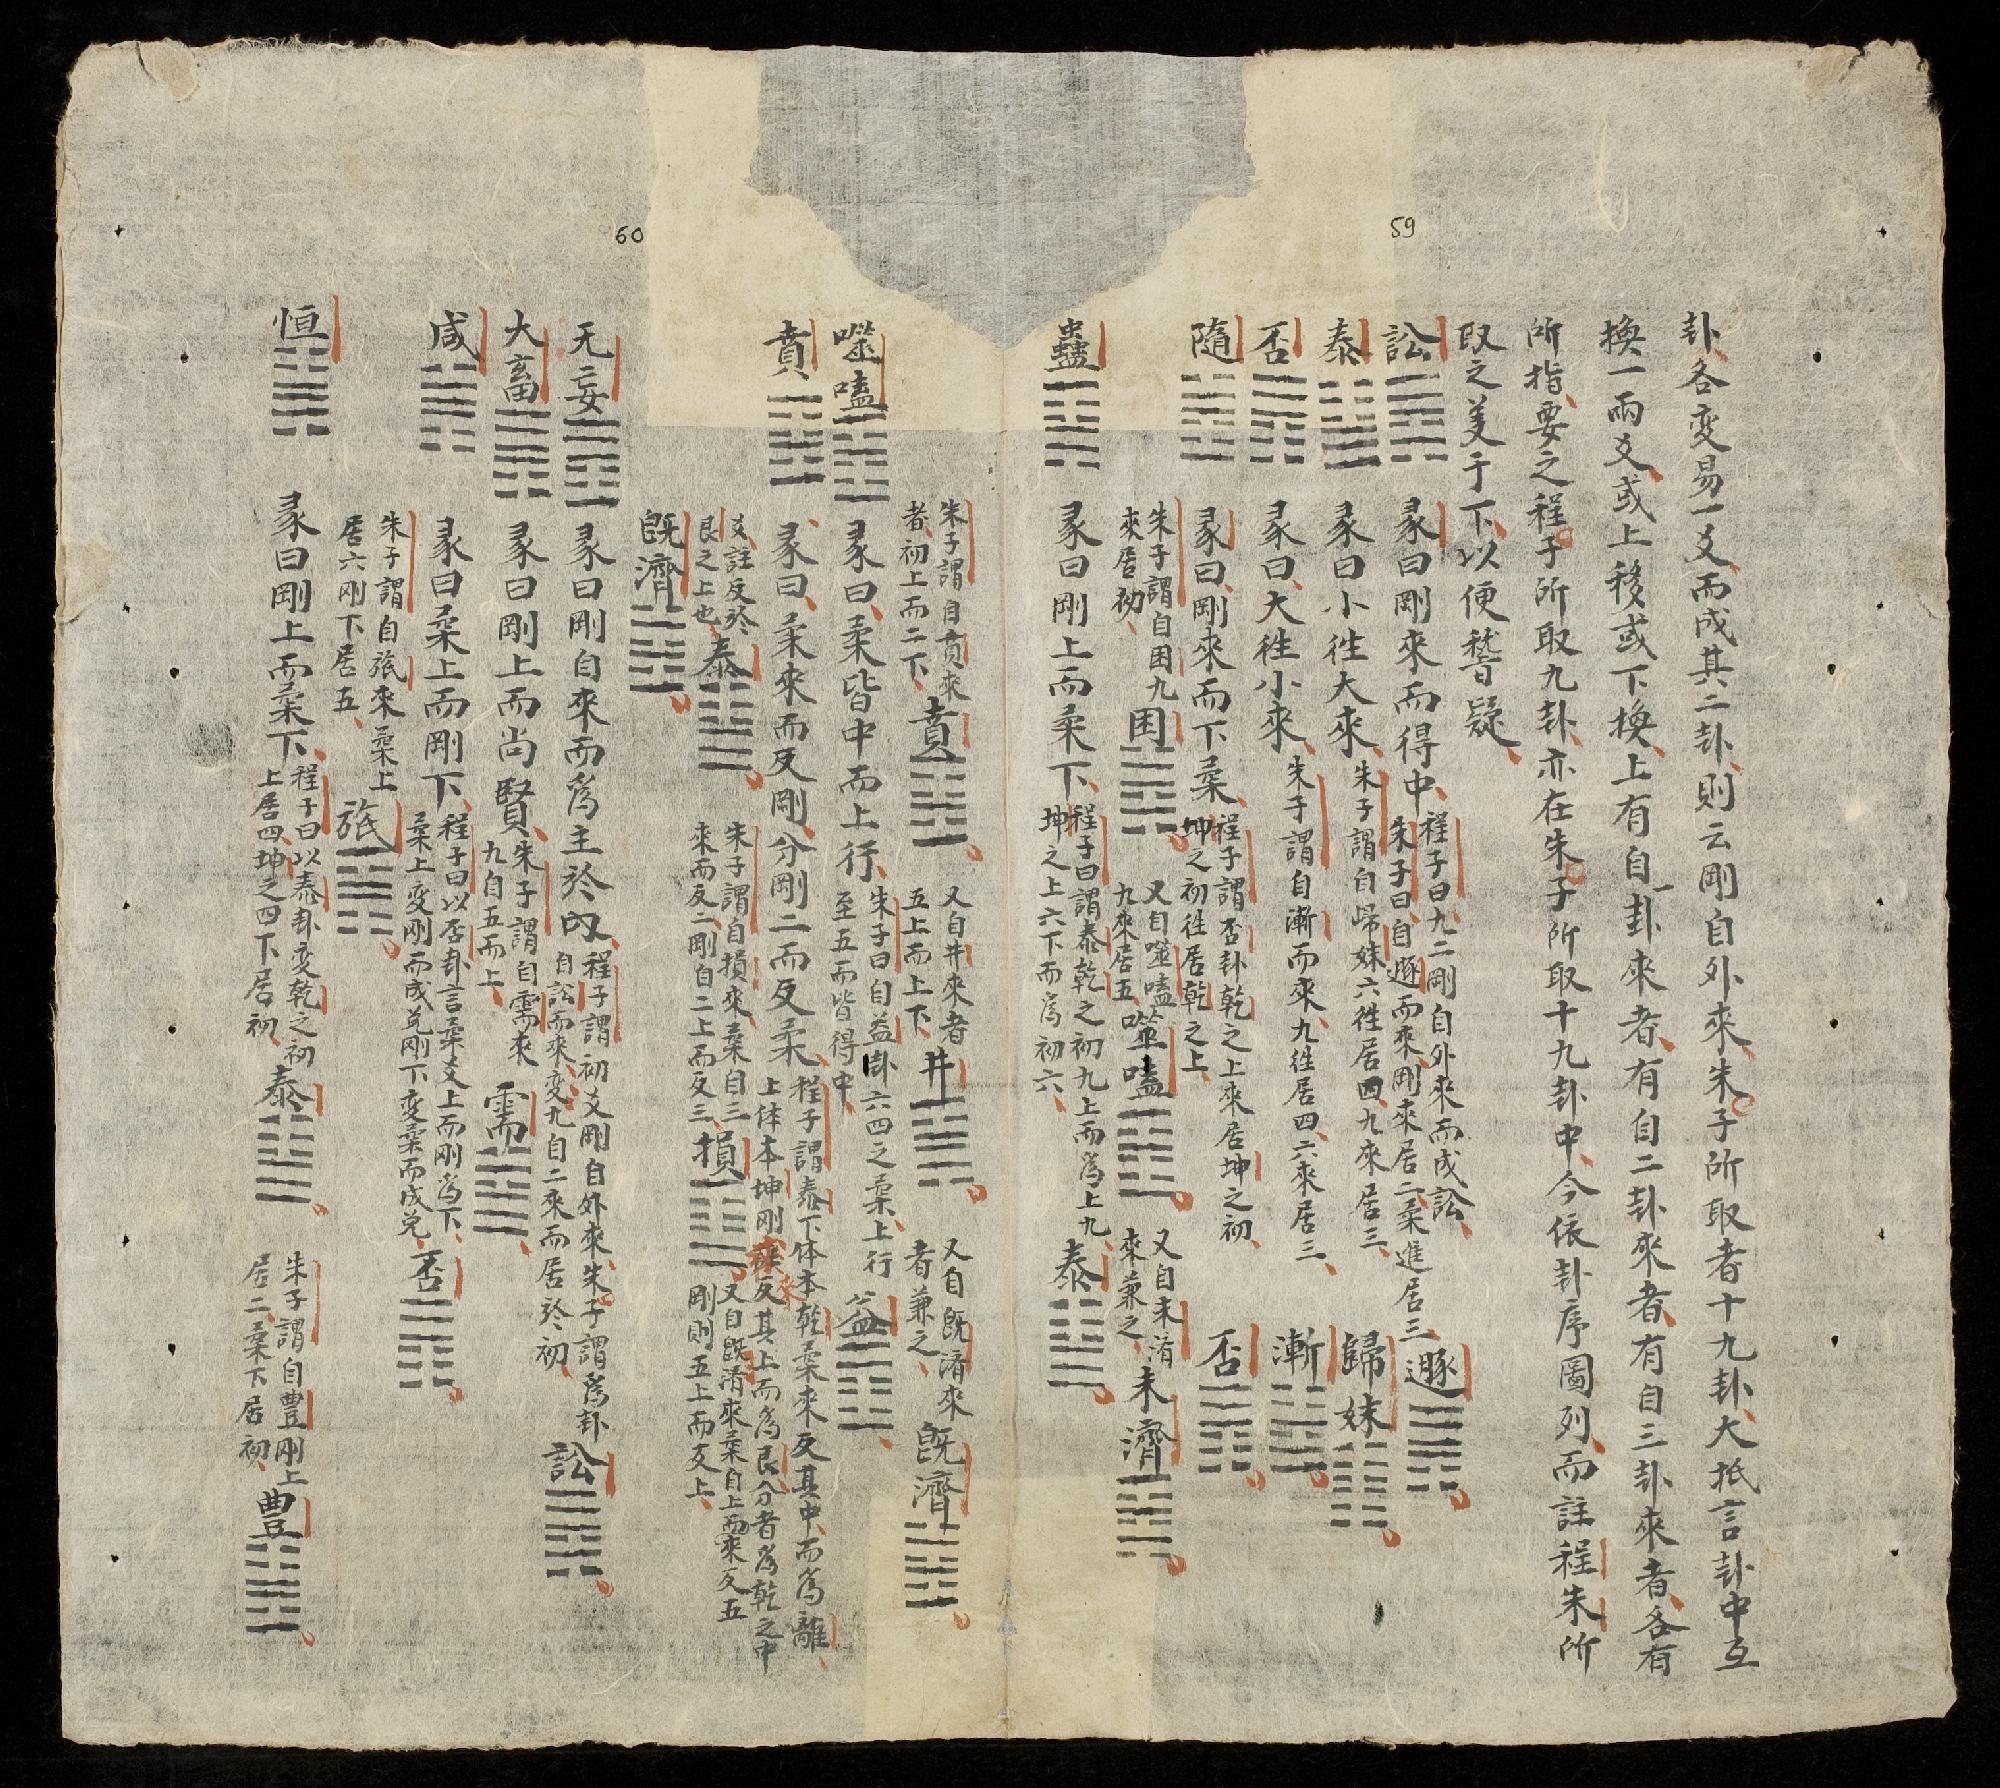 59
卦各变易一爻而成其二卦則云剛自外來朱子所取者十九卦大抵言卦中互
換一兩爻或上移或下換上有自一卦來者有自二卦來者有自三卦來者各有
所指要之程子所取九卦亦在朱子所取十九卦中今依卦序圖列而註程朱所
取之爻于下以便稽疑
訟䷅ 彖曰剛來而得中 程子曰九二剛自外來而成訟
朱子曰自遯而來剛來居二柔進居三 遯䷠
泰䷊ 彖曰小徃大來 朱子謂自歸妹六徃居四九來居三 歸妹䷵
否䷋ 彖曰大徃小來 朱子謂自漸而來九徃居四六來居三 漸䷴
隨䷐ 彖曰剛來而下柔 程子謂否卦乾之上來居坤之初
坤之初徃居乾之上 否䷋
朱子謂自困九
來居初 困䷮ 又自噬嗑
九來居五 噬嗑䷔ 又自未済
來兼之 未濟䷿
蠱䷑ 彖曰剛上而柔下 程子曰謂泰乾之初九上而為上九
坤之上六下而為初六 泰䷊
朱子謂自賁來
者初上而二下 賁䷕ 又自井來者
五上而上下 井䷯ 又自既済來
者兼之 既濟䷾
噬嗑䷔ 彖曰柔皆中而上行 朱子曰自益卦六四之柔上行
至五而皆得中 益䷩
賁䷕ 彖曰柔來而反剛分剛二而反柔 程子謂泰下体本乾柔來反其中而為離
上体本坤剛徃反其上而為艮分者為乾之中
爻註反於
艮之上也 泰䷊ 朱子謂自損來柔自三
來而反二剛自二上而反三 損䷨ 又自既済來柔自上而來反五
剛則五上而反上
既濟䷾
60
无妄䷘ 彖曰剛自來而為主於內 程子謂初爻剛自外來朱子謂為卦
自訟而來変九自二來而居於初 訟䷅
大畜䷙ 彖曰剛上而尚賢 朱子謂自需來
九自五而上 需䷄
咸䷞ 彖曰柔上而剛下 程子曰以否卦言柔爻上而剛爲下
柔上变剛而成兑剛下变柔而成兑 否䷋
朱子謂自旅來柔上
居六剛下居五 旅䷷
恒䷟ 彖曰剛上而柔下 程子曰以泰卦変乾之初
上居四坤之四下居初 泰䷊ 朱子謂自豊剛上
居二柔下居初 豊䷶